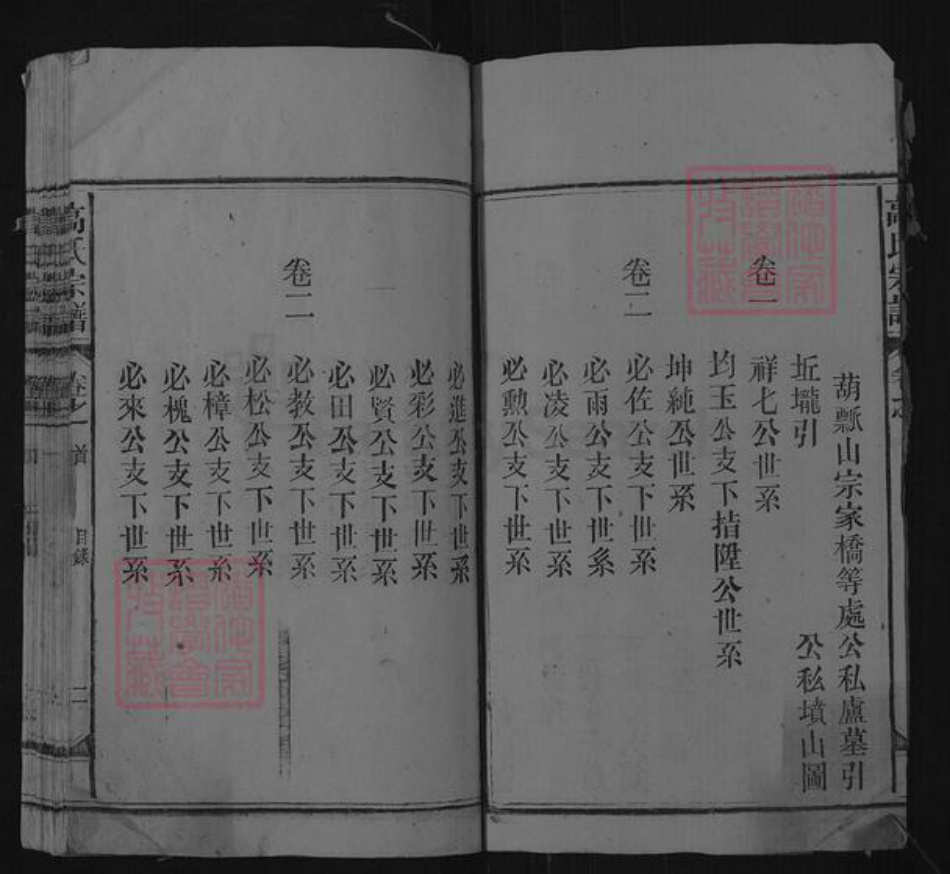 高氏宗譜
葫瓢山宗家橋等處公私廬墓引
坵壠引　公私墳山圖
卷一
祥七公世系
均玉公支下㨗陞公世系
坤純公世系
卷二
必佐公支下世系
必雨公支下世系
必凌公支下世系
必勲公支下世系
必進公支下世系
必彩公支下世系
必賢公支下世系
必田公支下世系
卷二
必教公支下世系
必松公支下世系
必樟公支下世系
必槐公支下世系
必來公支下世系
高氏宗譜
卷之首
目錄
二